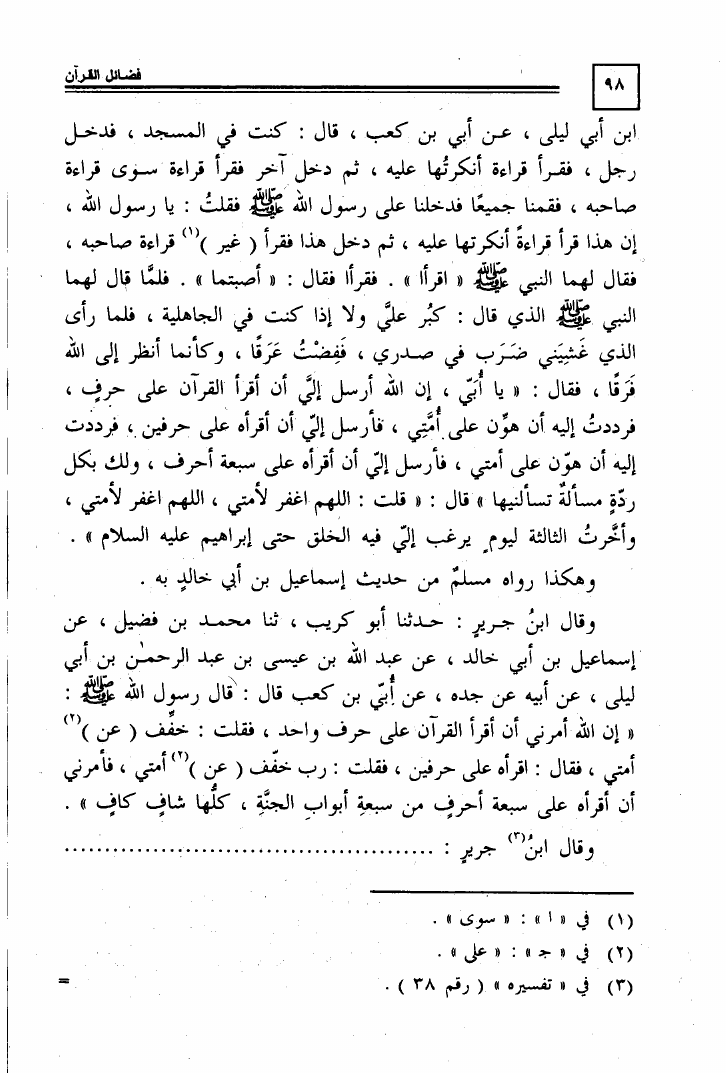 ٩٨
فضائل القرآن
ابن أبي ليلى ، عن أبي بن كعب ، قال : كنت في المسجد ، فدخل
رجل ، فقرأ قراءة أنكرتُها عليه ، ثم دخل آخر فقرأ قراءة سوى قراءة
صاحبه ، فقمنا جميعًا فدخلنا على رسول الله ﷺ فقلتُ : يا رسول الله ،
إن هذا قرأ قراءةً أنكرتها عليه ، ثم دخل هذا فقرأ ( غير )(١) قراءة صاحبه ،
فقال لهما النبي ﷺ « اقرأا » . فقرأا فقال : « أصبتما » . فلمَّا قال لهما
النبي ﷺ الذي قال : كبُر عليَّ ولا إذا كنت في الجاهلية ، فلما رأى
الذي غَشِيَني ضَرَب في صدري ، فَفِضْتُ عَرَقًا ، وكأنما أنظر إلى الله
فَرَقًا ، فقال : « يا أُبَيّ ، إن الله أرسل إليَّ أن أقرأ القرآن على حرفٍ ،
فرددتُ إليه أن هوِّن على أُمَّتِي ، فأرسل إليّ أن أقرأه على حرفين ، فرددت
إليه أن هوّن على أمتي ، فأرسل إليّ أن أقرأه على سبعة أحرف ، ولك بكل
ردّةٍ مسألةٌ تسألنيها » قال : « قلت : اللهم اغفر لأمتي ، اللهم اغفر لأمتي ،
وأخَّرتُ الثالثة ليومٍ يرغب إليّ فيه الخلق حتى إبراهيم عليه السلام » .
وهكذا رواه مسلمٌ من حديث إسماعيل بن أبي خالدٍ به .
وقال ابنُ جريرٍ : حدثنا أبو كريب ، ثنا محمد بن فضيل ، عن
إسماعيل بن أبي خالد ، عن عبد الله بن عيسى بن عبد الرحمٰن بن أبي
ليلى ، عن أبيه عن جده ، عن أُبيّ بن كعب قال : قال رسول الله ﷺ :
« إن الله أمرني أن أقرأ القرآن على حرف واحد ، فقلت : خفِّف ( عن )(٢)
أمتي ، فقال : اقرأه على حرفين ، فقلت : رب خفّف ( عن )(٢) أمتي ، فأمرني
أن أقرأه على سبعة أحرفٍ من سبعةِ أبوابِ الجنَّةِ ، كلُّها شافٍ كافٍ » .
وقال ابنُ(٣) جريرٍ : ..............................................
(١) في « ا » : « سوى » .
(٢) في « جـ » : « على » .
(٣) في « تفسيره » ( رقم ٣٨ ) .
=